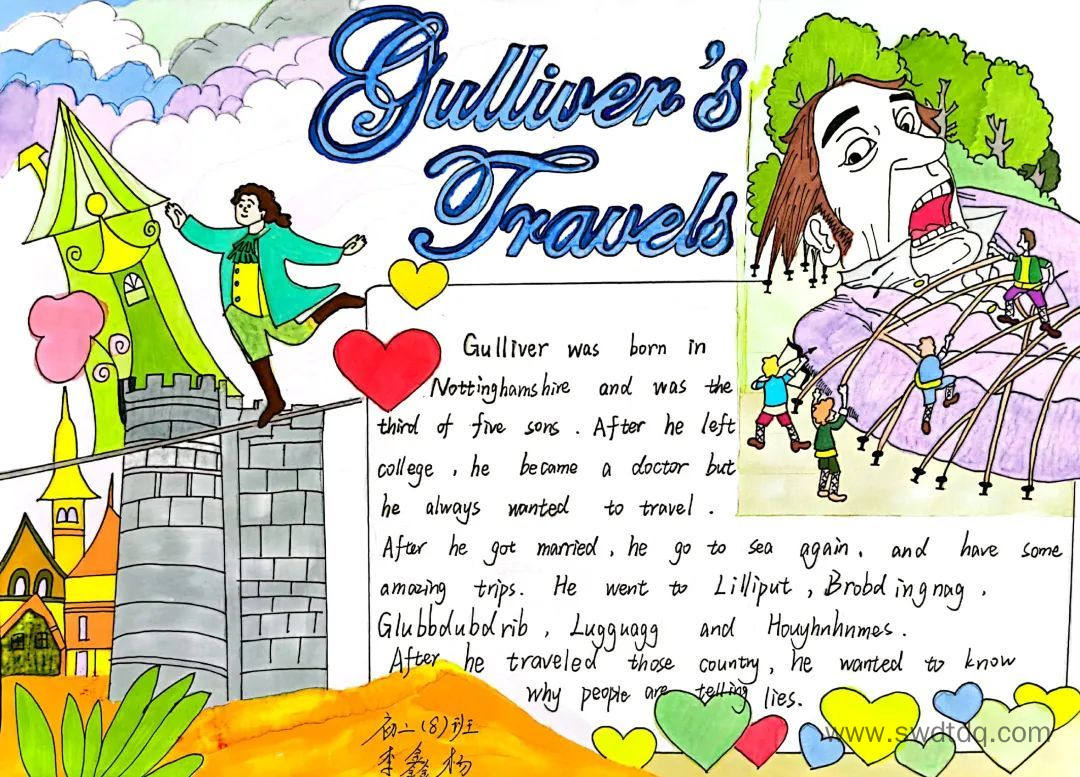 Gulliver's
Travels
Gulliver was born in
Nottinghamshire and was the
third of five sons. After he left
college, he became a doctor but
he always wanted to travel.
After he got married, he go to sea again. and have some
amazing trips. He went to Lilliput, Brobdingnag,
Glubbdubdrib, Lugguagg and Houyhnhnmes.
After he traveled those country, he wanted to know
why people are telling lies.
初二(8)班
李鑫杨
www.swdtdq.com